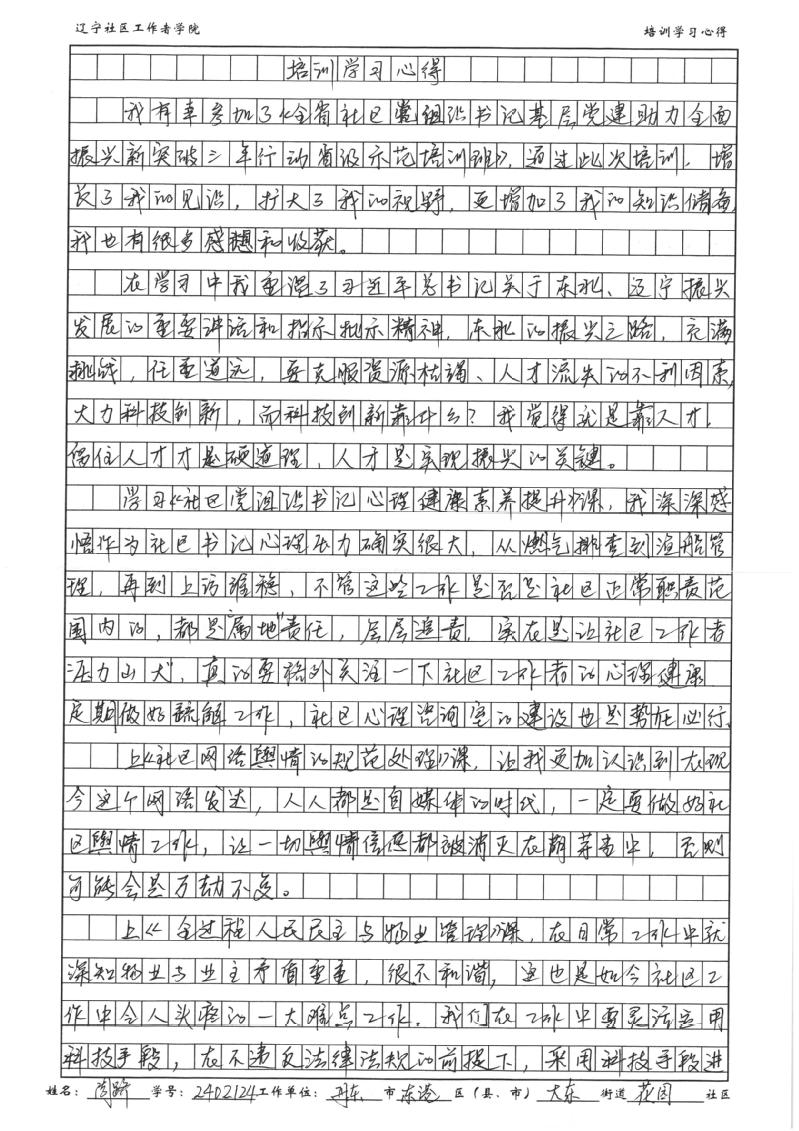 辽宁社区工作者学院 培训学习心得
培训学习心得
我有幸参加了《全省社区党组织书记基层党建助力全面
振兴新突破三年行动省级示范培训班》，通过此次培训，增
长了我的见识，扩大了我的视野，更增加了我的知识储备，
我也有很多感想和收获。
在学习中我重温了习近平总书记关于东北、辽宁振兴
发展的重要讲话和指示批示精神，东北的振兴之路，充满
挑战，任重道远，要克服资源枯竭、人才流失的不利因素，
大力科技创新，而科技创新靠什么？我觉得就是靠人才，
留住人才才是硬道理，人才是实现振兴的关键。
学习《社区党组织书记心理健康素养提升》课，我深深感
悟作为社区书记心理压力确实很大，从燃气排查到渔船管
理，再到上访维稳，不管这些工作是否是社区正常职责范
围内的，都是"属地"责任，层层追责，实在是让社区工作者
"压力山大"，真的要格外关注一下社区工作者的心理健康，
定期做好疏解工作，社区心理咨询室的建设也是势在必行。
上《社区网络舆情的规范处理》课，让我更加认识到在现
今这个网络发达，人人都是自媒体的时代，一定要做好社
区舆情工作，让一切舆情信息都被消灭在萌芽当中，否则
可能会是万劫不复。
上《全过程人民民主与物业管理》课，在日常工作中就
深知物业与业主矛盾重重，很不和谐，这也是如今社区工
作中令人头疼的一大难点工作。我们在工作中要灵活运用
科技手段，在不违反法律法规的前提下，采用科技手段进
姓名： 学号：2402124 工作单位：丹东 市 东港 区（县、市） 大东 街道 花园 社区